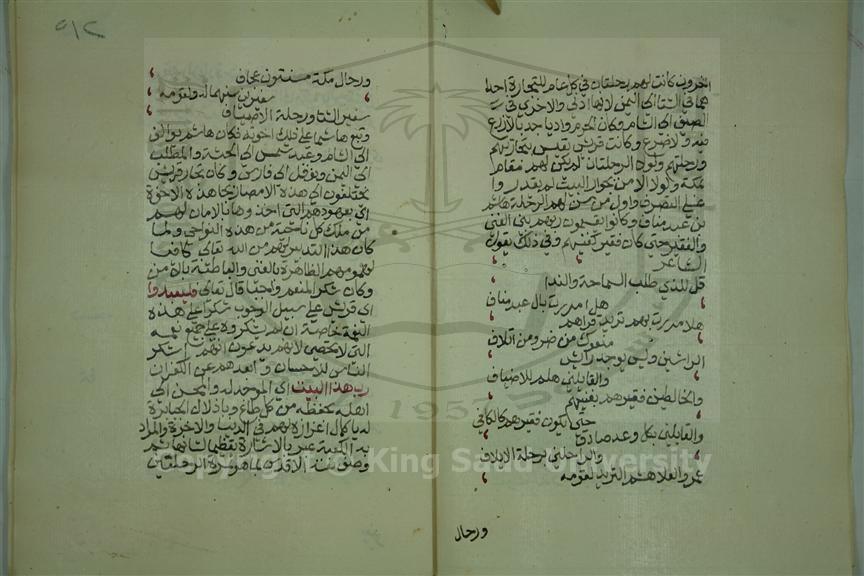 اخرون كانت لهم رحلتان في كل عام للتجارة احدا
هما في الشتا الى اليمن لانها ادفى والاخرى في
الصيف الى الشام وكان الحرم واديا جدبا لا زرع
فيه ولا ضرع وكانت قريش تعيش بتجارتهم
ورحلتهم ولولا الرحلتان لم يكن لهم مقام
بمكة ولولا الامن بجوار البيت لم يقدروا
على التصرف واول من سن لهم الرحلة هاشم
بن عبد مناف وكانوا يقسمون ربحهم بين الغني
والفقير حتى كان فقيرهم كغنيهم وفي ذلك يقول
الشاعر
قل للذي طلب السماحة والندا
هلا مررت بال عبد مناف
هلا مررت بهم تريد قراهم
منعوك من ضر ومن اتلاف
الرائشين وليس يوجد رائش
والقائلين هلم للاضياف
والخالطين فقيرهم بغنيهم
حتى يكون فقيرهم كالكافي
والقائلين بكل وعد صادق
والراحلين برحلة الايلاف
عمرو العلا هشم الثريد لقومه
ورجال
٥١٢
ورجال مكة مسنتون عجاف
سفرين سنها له ولقومه
سفر الشتا ورحلة الاصياف
وتبع هاشما على ذلك اخوته فكان هاشم يوالف
الى الشام وعبد شمس الى الحبشة والمطلب
الى اليمن ونوفل الى فارس وكان تجار قريش
يختلفون الى هذه الامصار بجاه هذه الاخوة
اي بعهودهم التي اخذوها بالامان لهم
من ملك كل ناحية من هذه النواحي ولما
كان هذا التدبير لهم من الله تعالى كافيا
لهمومهم الظاهرة بالغنى والباطنة بالامن
وكان شكر المنعم واجبا قال تعالى فليعبدوا
اي قريش على سبيل الوجوب شكرا على هذه
النعمة خاصة ان لم يشكروه على جميع نعمه
التي لا تحصى لانهم يدعون انهم اشكر
الناس للاحسان وابعدهم عن الكفران
رب هذا البيت اي الموجد له والمحسن الى
اهله بحفظه من كل طاغ وباذلال الجبابرة
له باكمال اعزازه لهم في الدنيا والاخرة والمراد
به الكعبة عبر بالاشارة تعظيما لشانها